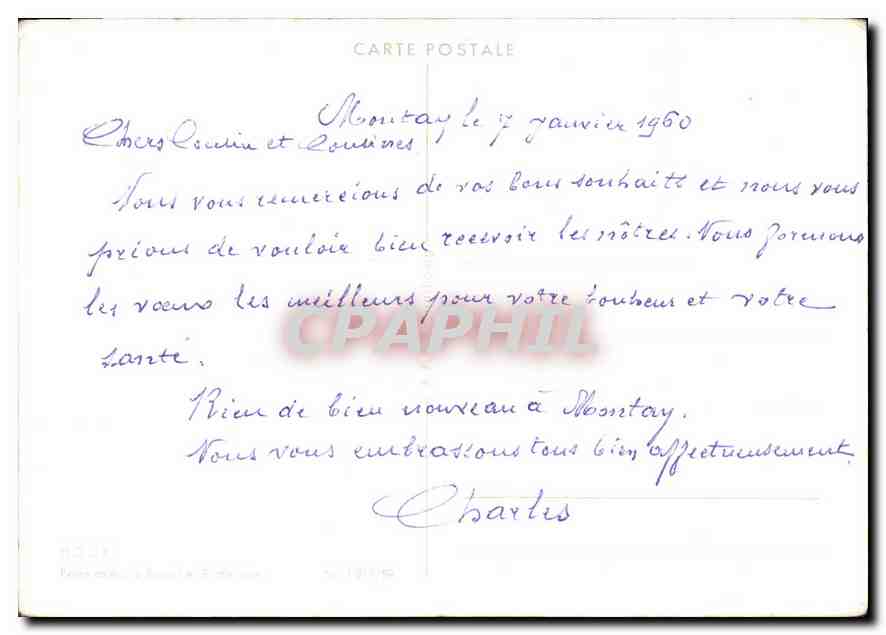 CARTE POSTALE
Montay le 7 janvier 1960
Chers Cousin et Cousines
Nous vous remercions de vos bons souhaits et nous vous
prions de vouloir bien recevoir les nôtres. Nous formons
les vœux les meilleurs pour votre bonheur et votre
santé.
CPAPHIL
Rien de bien nouveau à Montay.
Nous vous embrassons tous bien affectueusement.
Charles